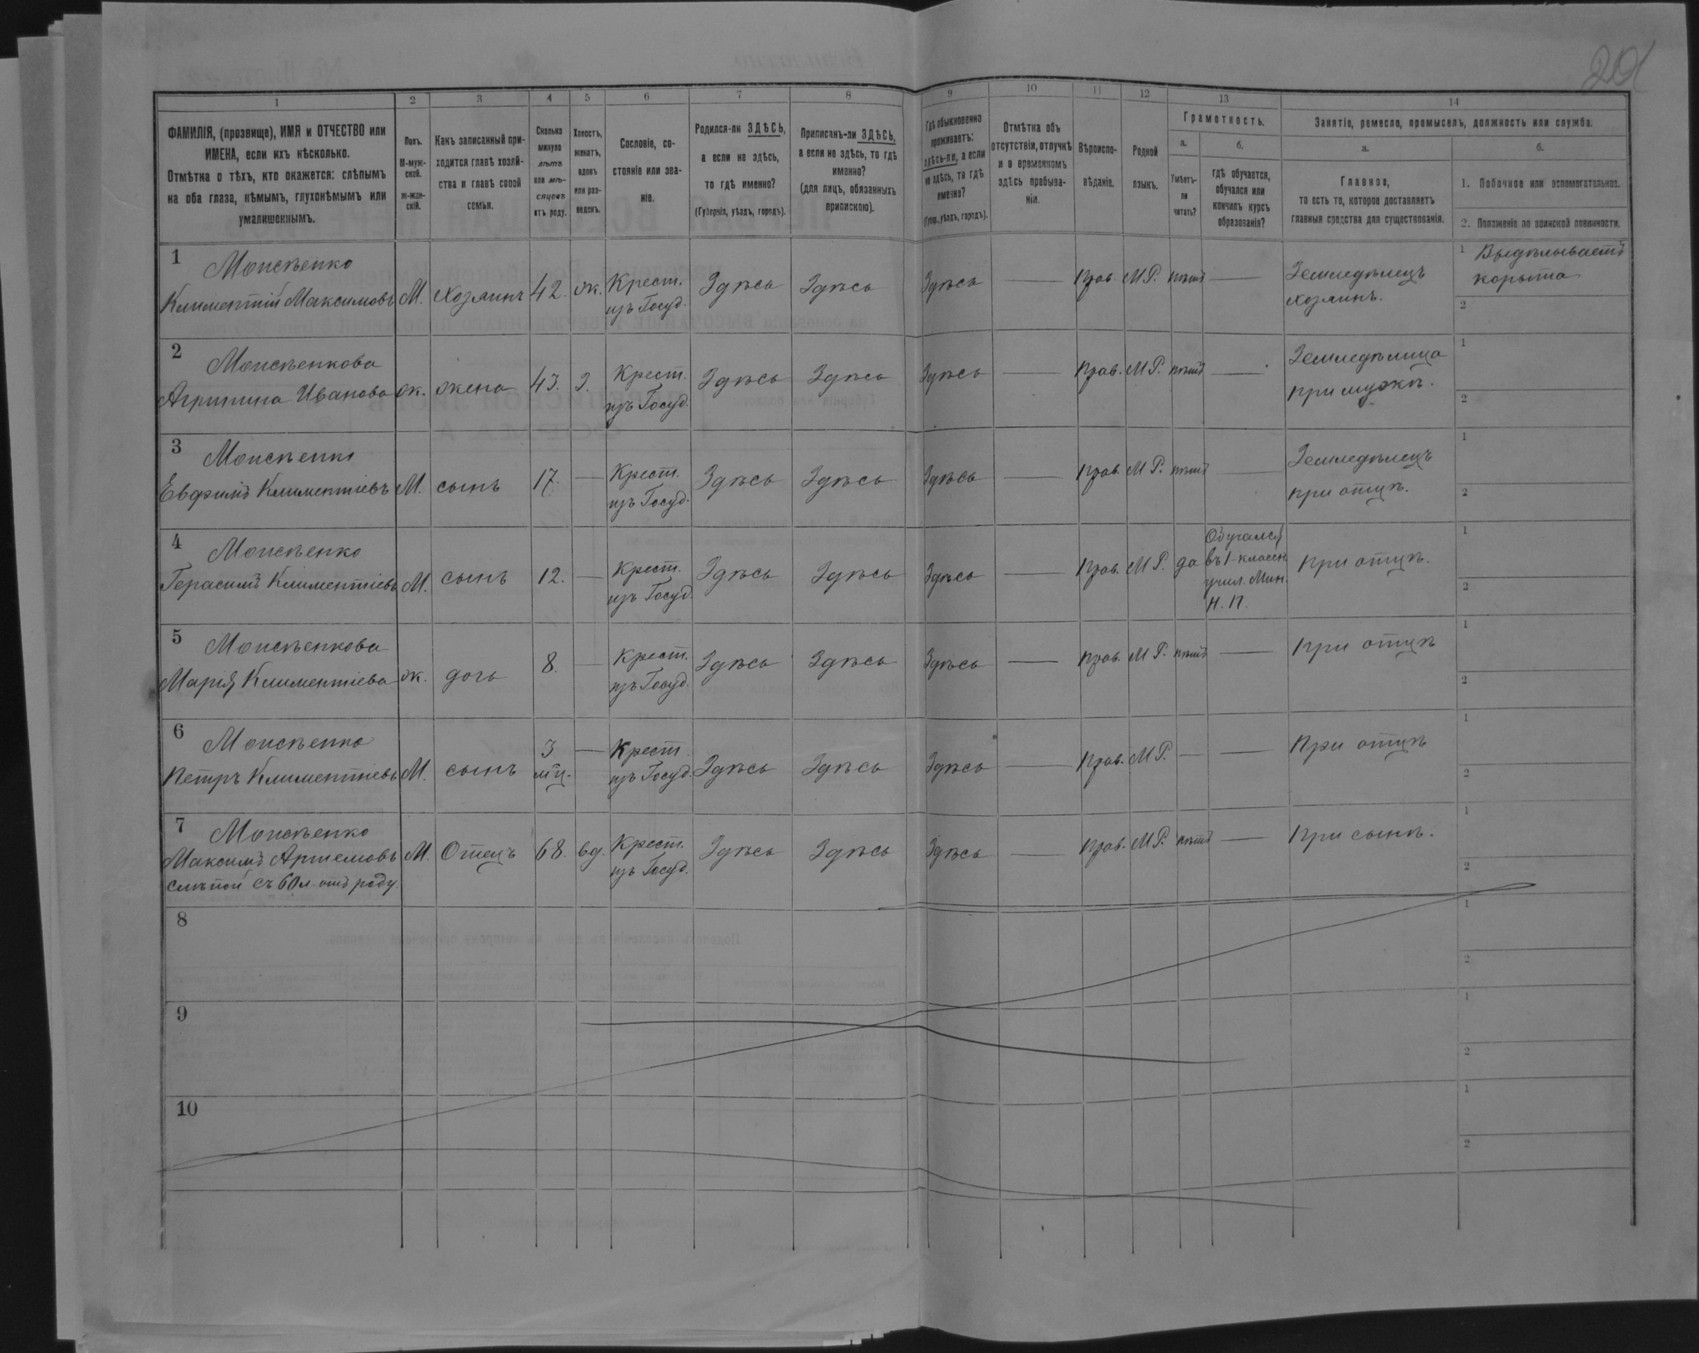 201
1 2 3 4 5 6 7 8 9 10 11 12 13 14
ФАМИЛІЯ, (прозвище), ИМЯ и ОТЧЕСТВО или
ИМЕНА, если ихъ нѣсколько.
Отмѣтка о тѣхъ, кто окажется: слѣпымъ
на оба глаза, нѣмымъ, глухонѣмымъ или
умалишеннымъ.
Полъ.
М-муж-
ской.
Ж-жен-
скій.
Какъ записанный при-
ходится главѣ хозяй-
ства и главѣ своей
семьи.
Сколько
минуло
лѣтъ
или мѣ-
сяцевъ
отъ роду.
Холостъ,
женатъ,
вдовъ
или раз-
веденъ.
Сословіе, со-
стояніе или зва-
ніе.
Родился-ли ЗДѢСЬ,
а если не здѣсь,
то гдѣ именно?
(Губернія, уѣздъ, городъ).
Приписанъ-ли ЗДѢСЬ,
а если не здѣсь, то гдѣ
именно?
(для лицъ, обязанныхъ
припискою).
Гдѣ обыкновенно
проживаетъ:
здѣсь-ли, а если
не здѣсь, то гдѣ
именно?
(Губер., уѣздъ, городъ).
Отмѣтка объ
отсутствіи, отлучкѣ
и о временномъ
здѣсь пребыва-
ніи.
Вѣроиспо-
вѣданіе.
Родной
языкъ.
Грамотность.
а.
Умѣетъ-
ли
читать?
б.
гдѣ обучается,
обучался или
кончилъ курсъ
образованія?
Занятіе, ремесло, промыселъ, должность или служба.
а.
Главное,
то есть то, которое доставляетъ
главныя средства для существованія.
б.
1. Побочное или вспомогательное.
2. Положеніе по воинской повинности.
1 Моисѣенко
Климентій Максимовъ М. Хозяинъ 42. ж. Крест. изъ Госуд. Здѣсь Здѣсь Здѣсь — Прав. М.Р. нѣтъ — Земледѣлецъ хозяинъ. 1 Выдѣлываетъ корыта 2
2 Моисѣенкова
Агрипина Иванова ж. жена 43. з. Крест. изъ Госуд. Здѣсь Здѣсь Здѣсь — Прав. М.Р. нѣтъ — Земледѣлица при мужѣ. 1 2
3 Моисѣенко
Евфимъ Климентіевъ М. сынъ 17. — Крест. изъ Госуд. Здѣсь Здѣсь Здѣсь — Прав. М.Р. нѣтъ — Земледѣлецъ при отцѣ. 1 2
4 Моисѣенко
Герасимъ Климентіевъ М. сынъ 12. — Крест. изъ Госуд. Здѣсь Здѣсь Здѣсь — Прав. М.Р. да Обучался въ 1-классн. учил. Мин. Н. П. при отцѣ. 1 2
5 Моисѣенкова
Марія Климентіева ж. дочь 8. — Крест. изъ Госуд. Здѣсь Здѣсь Здѣсь — Прав. М.Р. нѣтъ — При отцѣ 1 2
6 Моисѣенко
Петръ Климентіевъ М. сынъ 3 мц. — Крест. изъ Госуд. Здѣсь Здѣсь Здѣсь — Прав. М.Р. — — При отцѣ 1 2
7 Моисѣенко
Максимъ Артемовъ М. Отецъ 68. вд. Крест. изъ Госуд. Здѣсь Здѣсь Здѣсь — Прав. М.Р. нѣтъ — При сынѣ. 1 2
слѣпой съ 60 л. отъ роду
8 1 2
9 1 2
10 1 2